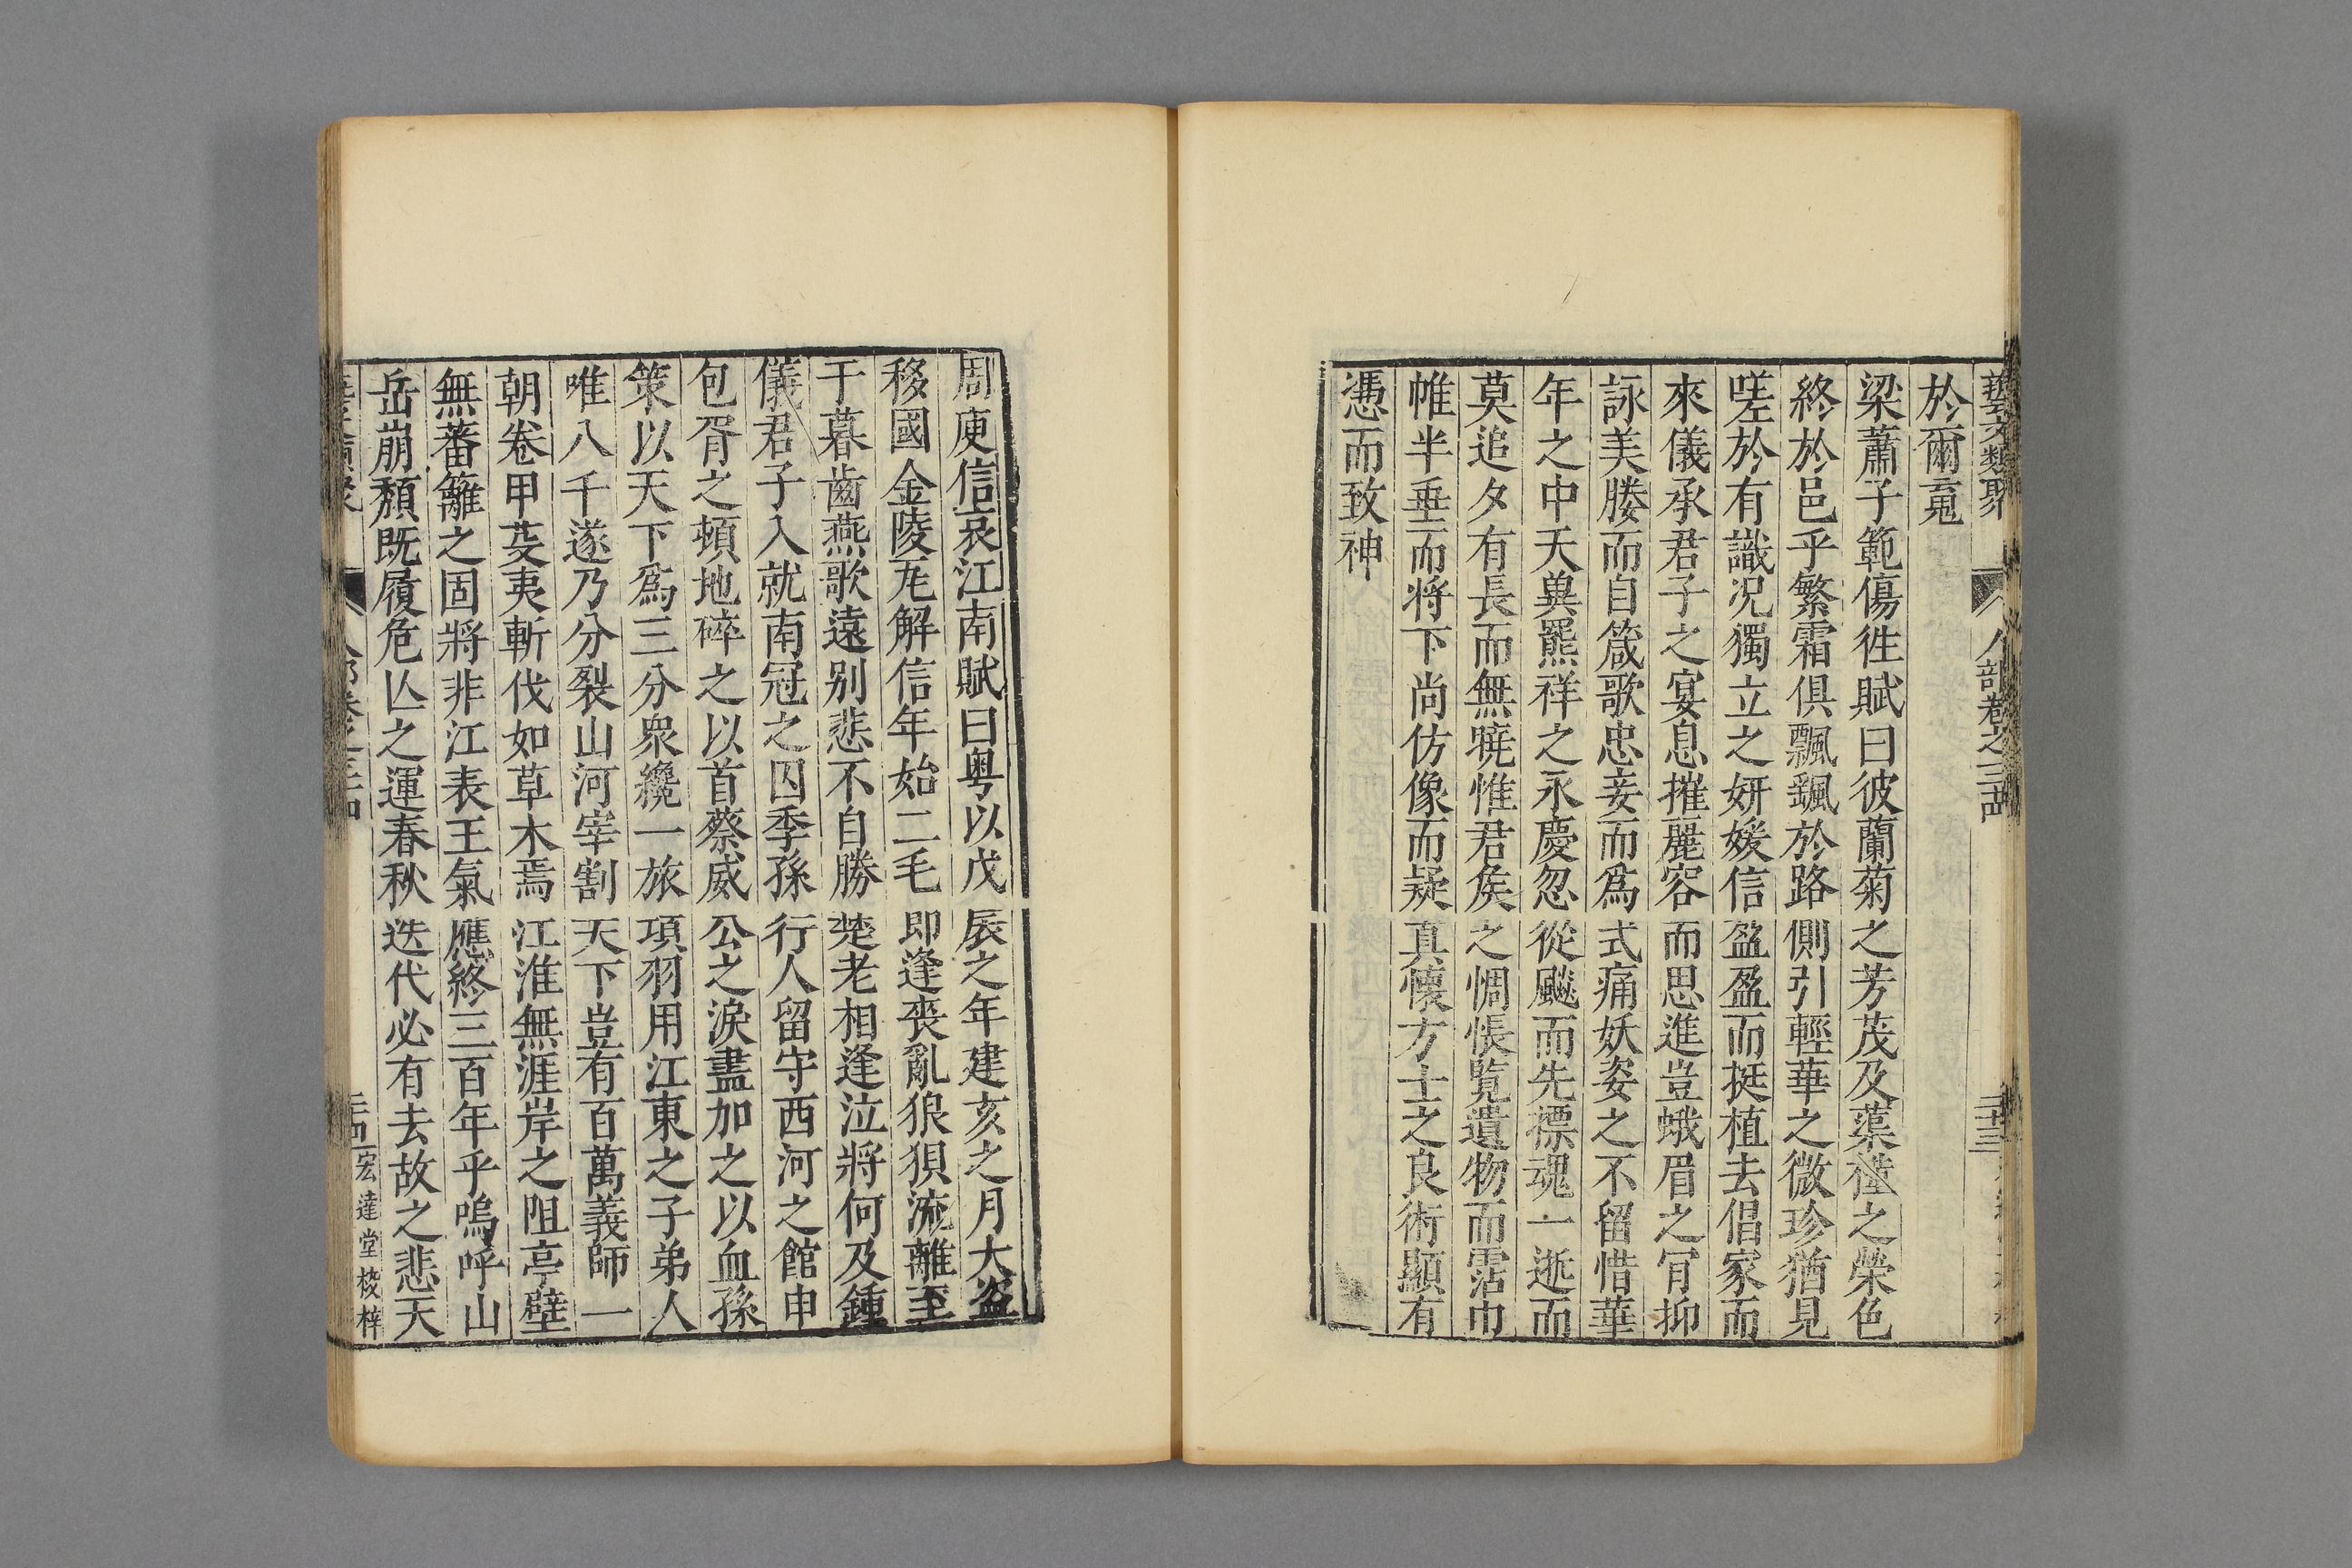 藝文類聚 人部卷之三十四 二十三
於爾竟
梁蕭子範傷徃賦曰彼蘭菊之芳茂及蕖槿之榮色
終於邑乎繁霜俱飄颻於路側引輕華之微珍猶見
嗟於有識况獨立之妍媛信盈盈而挺植去倡家而
來儀承君子之宴息摧麗容而思進豈蛾眉之肯抑
詠美媵而自箴歌忠妾而爲式痛妖姿之不留惜華
年之中夭異羆祥之永慶忽從飈而先摽魂一逝而
莫追夕有長而無曉惟君矦之惆悵覧遺物而霑巾
帷半垂而将下尚仿像而疑真懷方士之良術顯有
憑而致神
周庾信哀江南賦曰粤以戊辰之年建亥之月大盗
移國金陵瓦解信年始二毛即逢喪亂狼狽流離至
于暮齒燕歌遠别悲不自勝楚老相逢泣將何及鍾
儀君子入就南冠之囚季孫行人留守西河之館申
包胥之頓地碎之以首蔡威公之淚盡加之以血孫
策以天下爲三分衆纔一旅項羽用江東之子弟人
唯八千遂乃分裂山河宰割天下豈有百萬義師一
朝卷甲芟夷斬伐如草木焉江淮無涯岸之阻亭壁
無蕃籬之固將非江表王氣應終三百年乎嗚呼山
岳崩頽既履危亾之運春秋迭代必有去故之悲天
宏達堂校梓